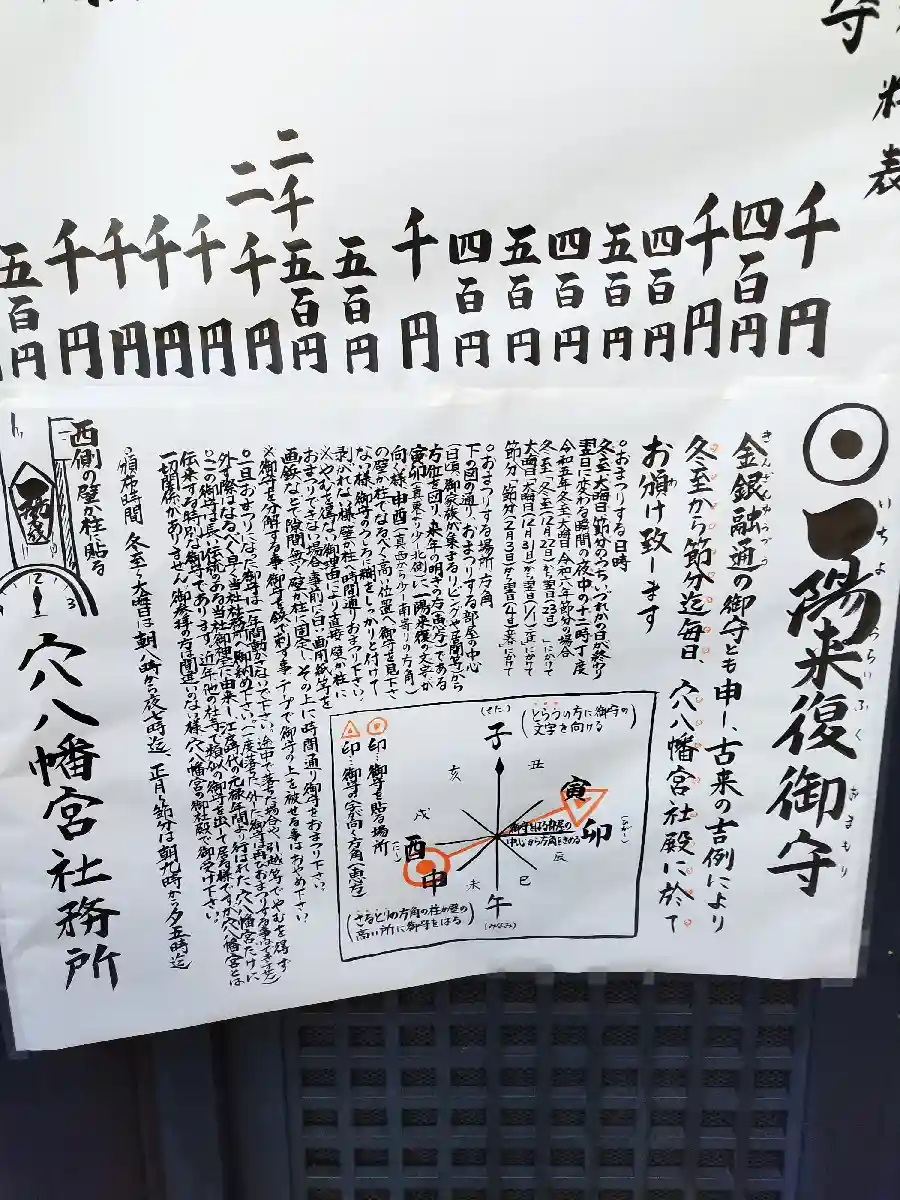 守
料
表
千円
四百円
千円
四百円
五百円
四百円
五百円
四百円
千円
五百円
二千五百円
二千円
千円
千円
千円
千円
五百円
一陽来復御守
いちようらいふくおまもり
金銀融通の御守とも申し、古来の吉例により
きんぎんゆうづう
冬至から節分迄毎日、穴八幡宮社殿に於て
お頒け致します
わ
○おまつりする日時
冬至、大晦日、節分のうち、いずれかの日が終り
翌日に変わる瞬間の夜中の十二時丁度
令和五年冬至・大晦日・令和六年節分の場合
冬至「冬至(12月22日)から翌日(23日)」にかけて
大晦日「大晦日(12月31日)から翌日(1/1)元旦」にかけて
節分「節分(2月3日)から翌日(4日立春)」にかけて
○おまつりする場所・方角
下の図の通り、おまつりする部屋の中心
(日頃、御家族が集まるリビングや居間等)から
方位を図り、来年の明きの方(寅卯)である
寅卯(真東から少し北側)に一陽来復の文字が
向く様、申酉(真西から少し南寄りの方角)
の壁か柱でなるべく高い位置へ御守を見下さ
ない様、御守のうしろに糊をしっかりと付けて
剥がれない様、壁か柱へ時間通りおまつり下さい。
※やむを得ない御理由により直接、壁か柱に
おまつりできない場合、事前に白い画用紙等を
画鋲などで隙間無く壁か柱に固定し、その上に時間通り御守をおまつり下さい。
※御守を分解する事、御守を鋲で刺す事、テープで御守の上を被せる事はおやめ下さい。
○一旦おまつりになった御守は一年間動かさないで下さい。途中で落ちた場合や、引越等でやむを得ず
外す際は、なるべく早く当社社務所へ御納め下さい。(一度落ちた、外した御守は再びおまつりする事はできません)
○この御守は長い伝統のある当社御神徳に由来し江戸時代の元禄年間より行はれた、穴八幡宮だけに
伝来する特別な御守であります。近年他の社寺で類似の御守が出て居る様ですが穴八幡宮とは
一切関係がありません。御参拝の方は間違いない様、穴八幡宮の御社殿で御受け下さい。
○頒布時間 冬至〜大晦日は朝八時から夜七時迄、正月〜節分は朝九時から夕五時迄
(とらうの方に御守の
文字を向ける)
(きた)
子
丑
寅
卯
(ひがし)
辰
巳
午
(みなみ)
未
申
酉
(にし)
戌
亥
御守をはる部屋の
中心から方角をきめる
印…御守を貼る場所
印…御守(文字)が向く方角(寅卯)
(さるとりの方角の柱か壁の
高い所に御守をはる)
西側の壁か柱に貼る
2
3
穴八幡宮社務所